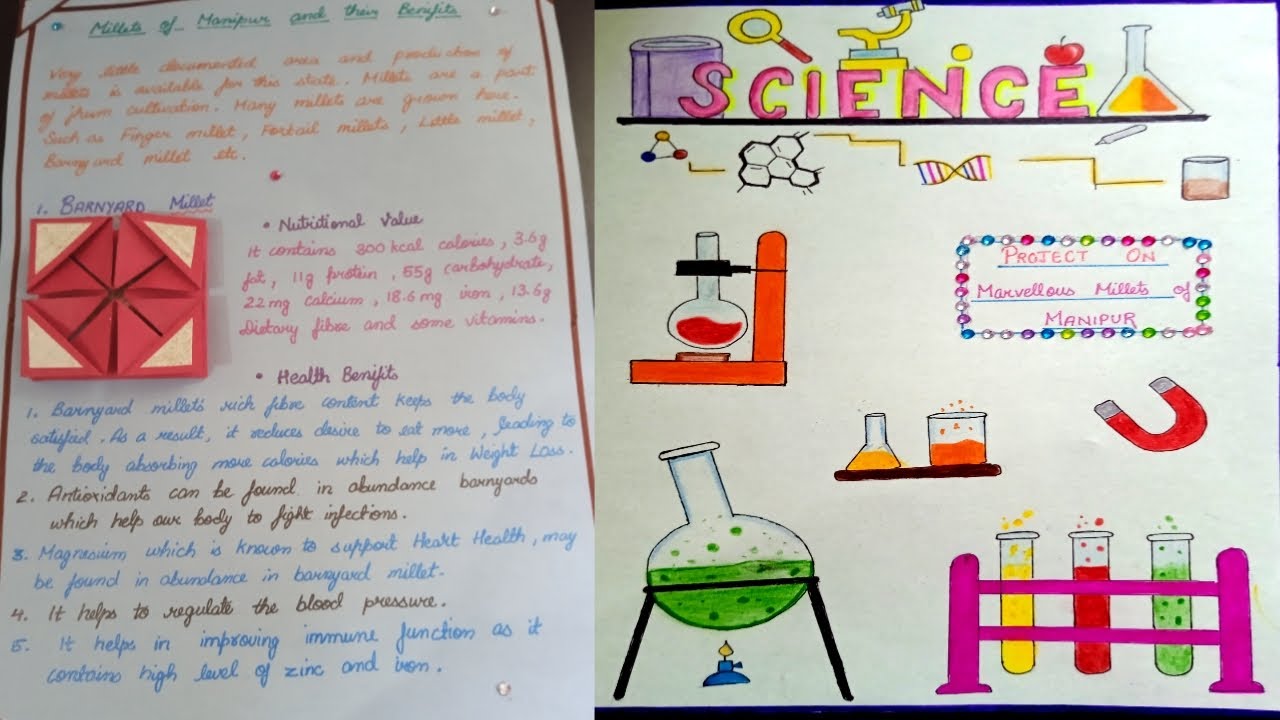 Millets of Manipur and their Benifits
Very little documented area and production of
millets is available for this state. Millets are a part
of jhum cultivation. Many millets are grown here.
Such as Finger millet, Foxtail millets, Little millet,
Barnyard millet etc.
1. BARNYARD Millet
• Nutritional Value
It contains 300 kcal calories, 3.6g
fat, 11g protein, 55g carbohydrate,
22 mg calcium, 18.6 mg iron, 13.6g
Dietary fibre and some vitamins.
• Health Benifits
1. Barnyard millet's rich fibre content keeps the body
satisfied. As a result, it reduces desire to eat more, leading to
the body absorbing more calories which help in Weight Loss.
2. Antioxidants can be found in abundance barnyards
which help our body to fight infections.
3. Magnesium which is known to support Heart Health, may
be found in abundance in barnyard millet.
4. It helps to regulate the blood pressure.
5. It helps in improving immune function as it
contains high level of zinc and iron.
SCIENCE
PROJECT ON
Marvellous Millets of
MANIPUR